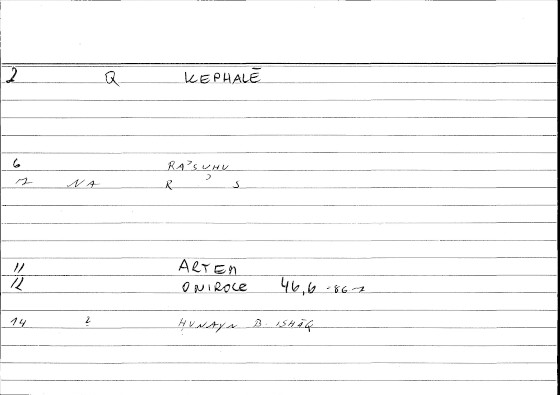 2 Q KEPHALĒ
6 RAʾSUHU
7 NA R ʾ S
11 ARTEM
12 ONIROCR 46,6 -86-7
14 2 ḤUNAYN B. ISḤĀQ